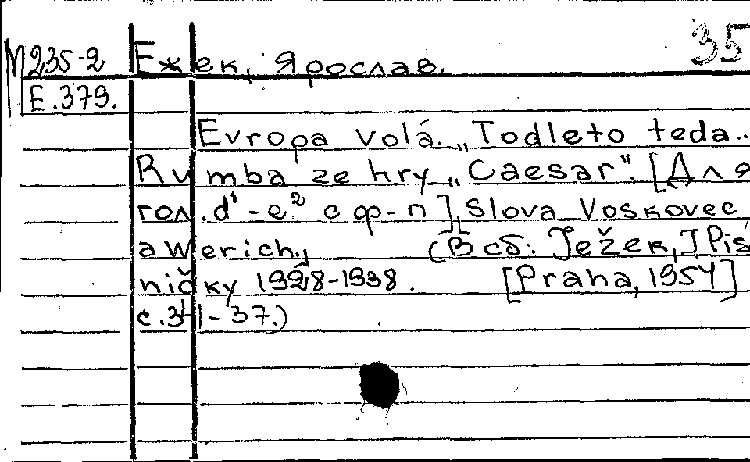 35
М 235-2 Ежек, Ярослав.
Е.379.
Evropa volá. „Todleto teda..
Rumba ze hry „Caesar". [Для
гол. d¹-e² с ф-п]. Slova Voskovec
a Werich. (В сб: Ježek, J Pís
ničky 1928-1938. [Praha, 1954]
с.34-37.)